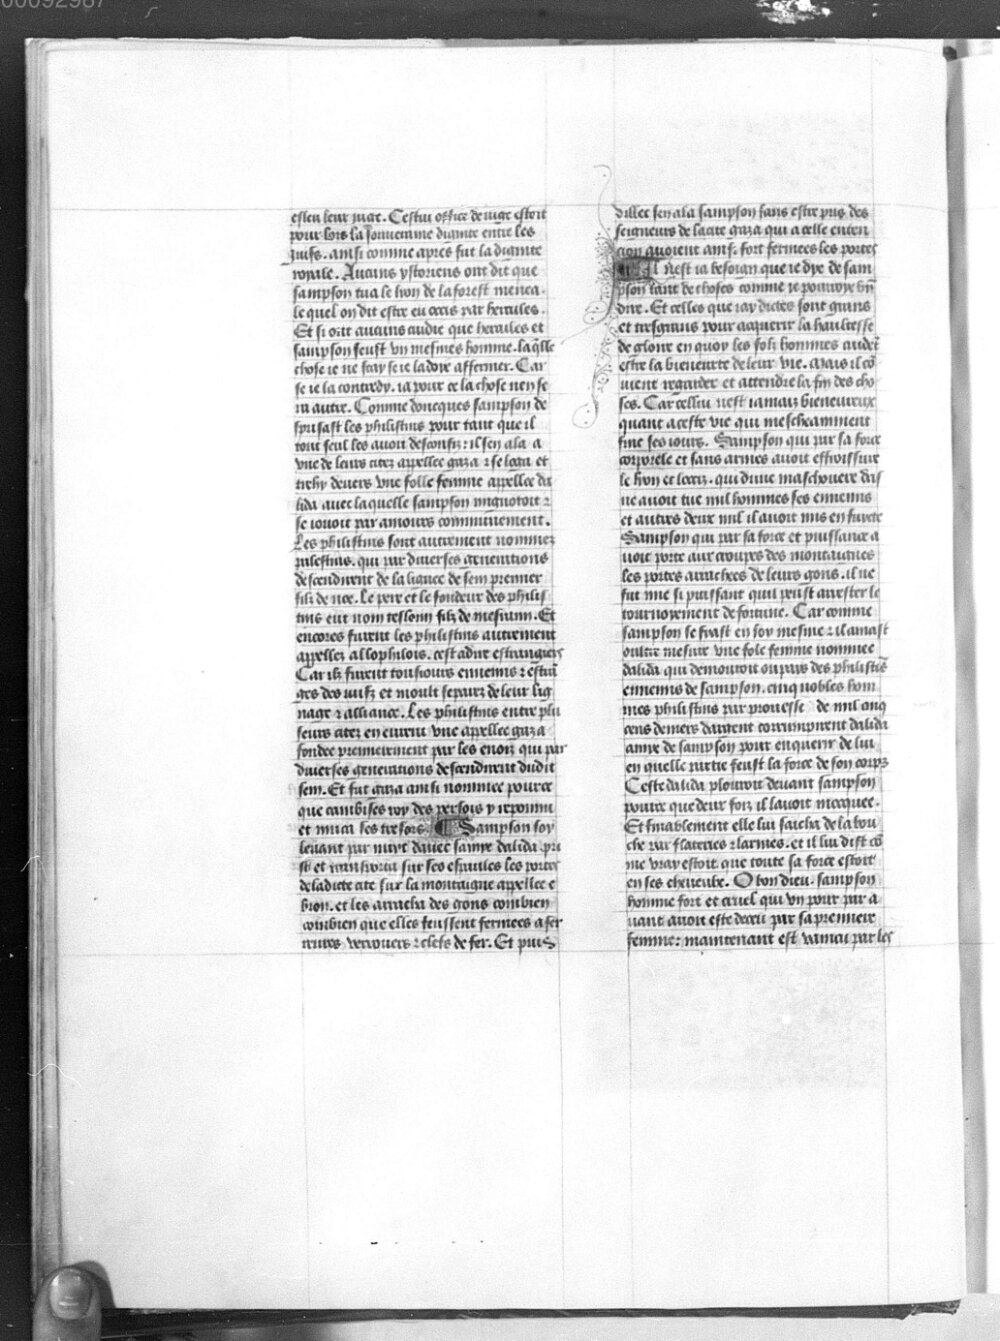 00092987
esleu leur iuge. Cestui office de iuge estoit
pour lors la souueraine dignite entre les
iuifs. ainsi comme apres fut la dignite
royale. Aucuns ystoriens ont dit que
sampson tua le lyon de la forest menea.
le quel on dit estre eu occis par hercules.
Et si ont aucuns audie que hercules et
sampson feust vn mesmes homme. la q̄lle
chose ie ne scay se ie la doye affermer. Car
se ie la contredy. ia pour ce la chose nen se
ra autre. Comme doncques sampson de
sprisast les philistins pour tant que il
tout seul les auoit desconfiz: il sen ala a
vne de leurs citez appellee gaza ⁊ se loga et
tichy deuers vne folle femme appellee da
lida auec laquelle sampson mignotoit ⁊
se iouoit par amours communement.
Les philistins sont autrement nommez
palestins. qui par diuerses generations
descendirent de la lignee de sem premier
filz de noe. Le pere et le fondeur des philis
tins eut nom cesloim filz de mesraim. Et
encores furent les philistins autrement
appellez allophilois. cest adire estrangiers
Car ilz furent tousiours ennemis ⁊ estrā
ges des iuifz et moult separez de leur lig
nage ⁊ alliance. Les philistins entre plu
seurs citez en eurent vne appellee gaza
fondee premierement par les eueiz qui par
diuerses generations descendirent dudit
sem. Et fut gaza ainsi nommee pource
que cambises roy des persois y repounit
et muca ses tresors. Sampson soy
leuant par nuyt dauec samye dalida pri
st et transporta sur ses espaules les portes
de ladicte cite sur la montaigne appellee e
bron. et les arracha des gons combien
combien que elles feussent fermees a fer
rures verroulx ⁊ clefs de fer. Et puis
dillec sen ala sampson sans estre pris des
seigneurs de la cite gaza qui a celle enten
cion auoient ainsi fort fermees les portes
Il nest ia besoign que ie dye de sam
pson tant de choses comme ie pouroye bn̄
dire. Et celles que iay dictes sont grans
et tresgrans pour acquerir la haultesse
de gloire en quoy les folz hommes cuidēt
estre la bieneurte de leur vie. Mais il cō
uient regarder et attendre la fin des cho
ses. Car cellui nest iamais bieneureux
quant a ceste vie qui mescheamment
fine ses iours. Sampson qui par sa force
corporele et sans armes auoit effroissure
le lyon et leeciz. qui dune maschouere das
ne auoit tue mil hommes ses ennemis
et autres deux mil il auoit mis en fuyete
Sampson qui par sa force et puissance a
uoit porte aux croupes des montaignes
les portes arrachees de leurs gons. il ne
fut mie si puissant quil peust arrester le
tournoyement de fortune. Car comme
sampson se fiast en soy mesme ⁊ il amast
oultre mesure vne fole femme nommee
dalida qui demouroit ou pays des philistīs
ennemis de sampson. cinq nobles hom
mes philistins par prouesse de mil cinq
cens deniers dargent corrumpirent dalida
amye de sampson pour enquerir de lui
en quelle partie feust la force de son corps
Ceste dalida plouroit deuant sampson
pource que deux foiz il lauoit mocquee.
Et finablement elle lui saicha de la bou
che par flateries ⁊ larmes. et il lui dist cō
me vray estoit. que toute sa force estoit
en ses cheueulx. O bon dieu. sampson
homme fort et cruel qui vn pour par a
uant auoit este deceu par sa premiere
femme: maintenant est vaincu par les